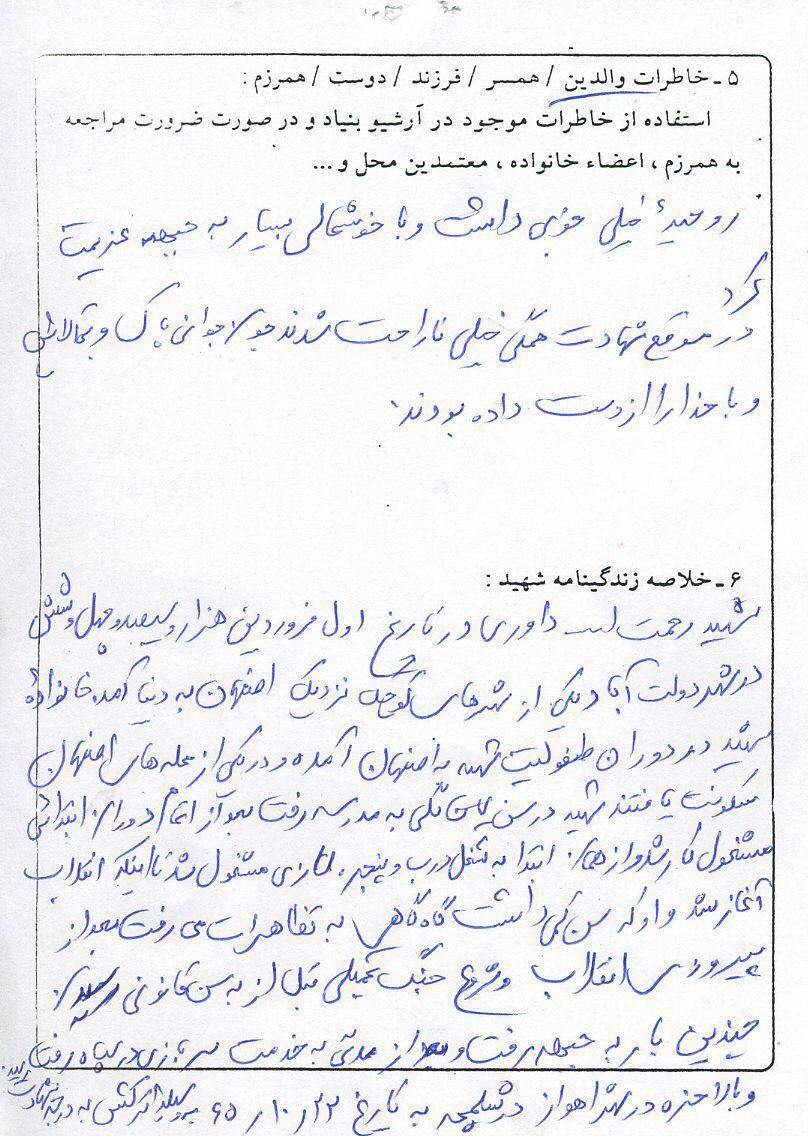 ۵ ـ خاطرات والدین / همسر / فرزند / دوست / همرزم :
استفاده از خاطرات موجود در آرشیو بنیاد و در صورت ضرورت مراجعه
به همرزم ، اعضاء خانواده ، معتمدین محل و ...
روحیهٔ خیلی خوبی داشت و با خوشحالی بسیار به جبهه عزیمت
کرد
در موقع شهادت همگی خیلی ناراحت شدند چون جوانی پاک و
و با خدا را از دست داده بودند.
۶ ـ خلاصه زندگینامه شهید :
شهید رحمت الله داوری در تاریخ اول فروردین هزار و سیصد و چهل و شش
در شهر دولت آباد یکی از شهرهای کوچک نزدیک اصفهان به دنیا آمد. خانواده
شهید در دوران طفولیت شهید به اصفهان آمده و در یکی از محله های اصفهان
سکونت یافتند شهید در سن به مدرسه رفت بعد از اتمام دوران ابتدائی
مشغول کار شد و از همان ابتدا به شغل درب و پنجره سازی مشغول شد تا اینکه انقلاب
آغاز شد و او که سن کمی داشت گاه گاهی به تظاهرات می رفت بعد از
پیروزی انقلاب و شروع جنگ تحمیلی قبل از به سن قانونی رسیدن
چندین بار به جبهه رفت و بعد از مدتی به خدمت سربازی در سپاه رفت
و بالاخره در شهر اهواز در شلمچه به تاریخ ۲۳ / ۱۰ / ۶۵ به وسیله ترکش به درجه شهادت رسید.